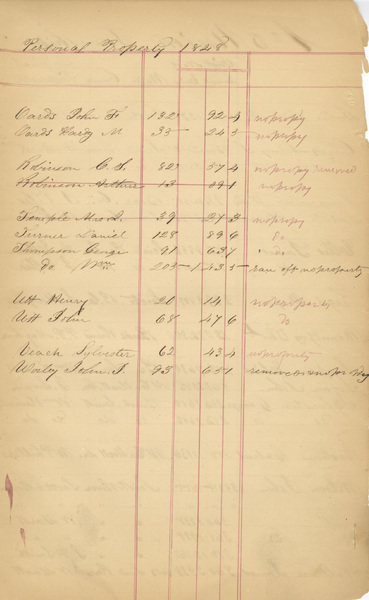 Personal Property 1828
Cards John F 132 92 4 nopropy
Cards Hardy M 35 24 5 nopropy
Robinson C. S. 82 57 4 nopropy removed
Robinson Arthur 13 09 1 nopropy
Temple Mas 39 27 3 nopropy
Turner Daniel 128 89 6 do
Thompson George 91 63 7
do Wm 205 1 83 5 noproperty
Utt Henry 20 14 noproperty
Utt John 68 47 6 do
Veach Sylvester 62 43 4 noproperty
John T. 93 65 1